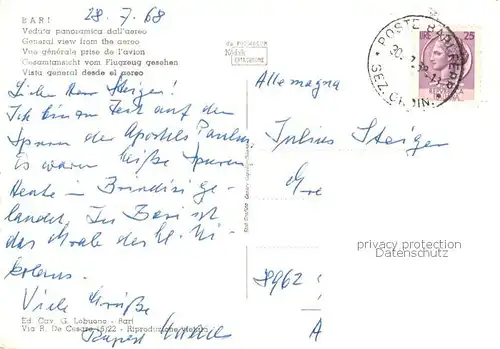 BARI
28.7.68
Veduta panoramica dall'aereo
General view from the aereo
Vue générale prise de l'avion
Gesamtansicht vom Flugzeug gesehen
Vista general desde el aereo
Kodak
EKTACHROME
LIRE 25
POSTE BARI FERR.
Allemagna
Lieber Herr Steiger!
Ich bin zur Zeit auf den
Spuren des Apostels Paulus
Es waren heiße Spuren
Heute in Brindisi ge-
landet. In Bari ist
das Grab des hl. Ni-
kolaus.
Viele Grüße
Julius Steiger
8962
A
privacy protection
Datenschutz
Ed. Cav. G. Lobuono - Bari
Via R. De Cesare 15/22 - Riproduzione vietata